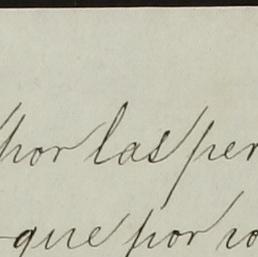 por las per
que por